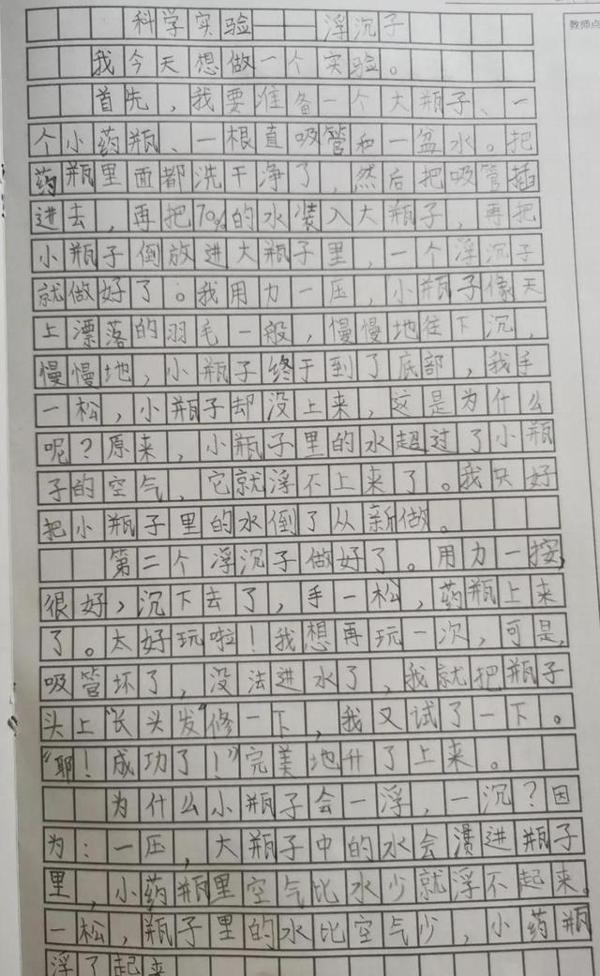 科学实验——浮沉子
我今天想做一个实验。
首先，我要准备一个大瓶子、一
个小药瓶、一根直吸管和一盆水。把
药瓶里面都洗干净了，然后把吸管插
进去，再把70%的水装入大瓶子，再把
小瓶子倒放进大瓶子里，一个浮沉子
就做好了。我用力一压，小瓶子像天
上漂落的羽毛一般，慢慢地往下沉，
慢慢地，小瓶子终于到了底部，我手
一松，小瓶子却没上来，这是为什么
呢？原来，小瓶子里的水超过了小瓶
子的空气，它就浮不上来了。我只好
把小瓶子里的水倒了从新做。
第二个浮沉子做好了。用力一按，
很好，沉下去了，手一松，药瓶上来
了。太好玩啦！我想再玩一次，可是，
吸管坏了，没法进水了，我就把瓶子
头上“长头发”修一下，我又试了一下。
“耶！成功了！”完美地升了上来。
为什么小瓶子会一浮，一沉？因
为：一压，大瓶子中的水会进瓶子
里，小药瓶里空气比水少就浮不起来。
一松，瓶子里的水比空气少，小药瓶
浮了起来
教师点